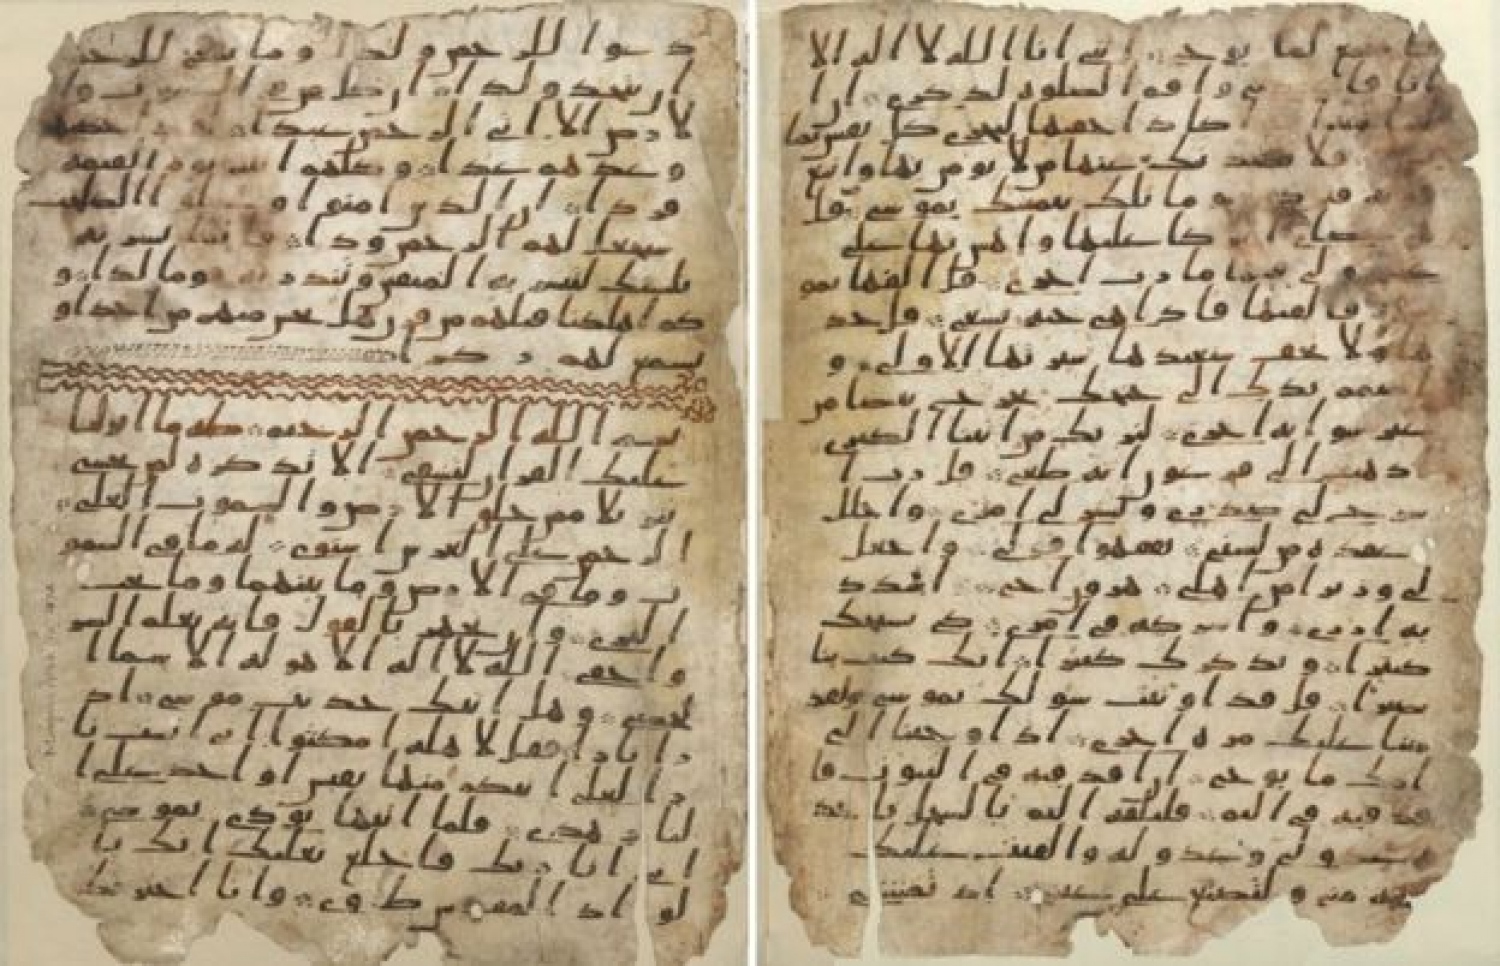 دعوا للرحمن ولدا وما ينبغي للرحمن
ان يتخذ ولدا ان كل من في السموت و
الارض الا اتي الرحمن عبدا لقد احصيهم
وعدهم عدا وكلهم اتيه يوم القيمه
فردا ان الذين امنوا وعملوا الصلحت
سيجعل لهم الرحمن ودا فانما يسرنه
بلسنك لتبشر به المتقين وتنذر به قوما لدا و
كم اهلكنا قبلهم من قرن هل تحس منهم من احد او
تسمع لهم ركزا
بسم الله الرحمن الرحيم طه ما انزلنا
عليك القران لتشقى الا تذكره لمن يخشى
تنزيلا ممن خلق الارض والسموت العلى
الرحمن على العرش استوى له ما في السمو
ت وما في الارض وما بينهما وما تحت
الثرى وان تجهر بالقول فانه يعلم السر
واخفى الله لا اله الا هو له الاسما ا
لحسنى وهل اتيك حديث موسى اذ
را نارا فقل لاهله امكثوا اني انست نا
را لعلي اتيكم منها بقبس او اجد على ا
لنار هدى فلما اتيها نودي يموسى
اني انا ربك فاخلع نعليك انك با
لواد المقدس طوى وانا اخترتك
فاستمع لما يوحى انني انا الله لا اله الا
انا فاعبدني واقم الصلوه لذكري ان ا
اكاد اخفيها لتجزى كل نفس بما
فلا يصدنك عنها من لا يومن بها واتبع
فتردى وما تلك بيمينك يموسى قل
عليها واهش بها على
غنمي ولي فيها مارب اخرى قل القها يمو
سى فالقيها فاذا هي حيه تسعى قل خذ
ها ولا تخف سنعيدها سيرتها الاولى و
اضمم يدك الى جنحك تخرج بيضا من
غير سو ايه اخرى لنريك من ايتنا الكبرى
اذهب الى فرعون انه طغى قل رب ا
شرح لي صدري ويسر لي امري واحلل
عقده من لسني يفقهوا قولي واجعل
لي وزيرا من اهلي هرون اخي اشدد
به ازري واشركه في امري كي نسبحك
كثيرا ونذكرك كثيرا انك كنت بنا
بصيرا قل قد اوتيت سولك يموسى ولقد
مننا عليك مره اخرى اذ اوحينا الى
امك ما يوحى ان اقذفيه في التبوت فا
قذفيه في اليم فليلقه اليم بالسحل ياخذه
عدو لي وعدو له والقيت عليك
محبه مني ولتصنع على عيني اذ تمشي